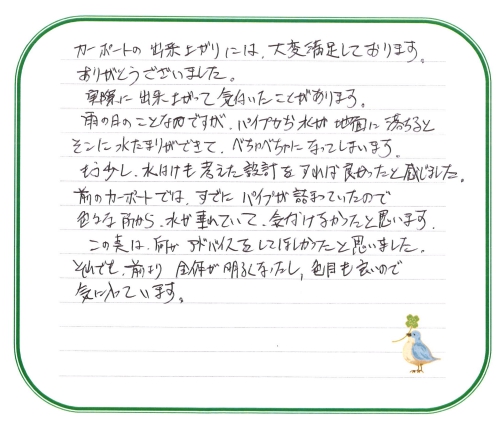 カーポートの出来上がりには、大変満足しております。
ありがとうございました。
実際に出来上がって気付いたことがあります。
雨の日のことなのですが、パイプから水が地面に落ちると
そこに水たまりができて、べちゃべちゃになってしまいます。
もう少し、水はけも考えた設計をすれば良かったと感じました。
前のカーポートでは、すでにパイプが詰まっていたので
色々な所から、水が垂れていて、気付けなかったと思います。
この点は、何かアドバイスをしてほしかったと思いました。
それでも、前より全体が明るくなったし、色目も良いので
気に入っています。